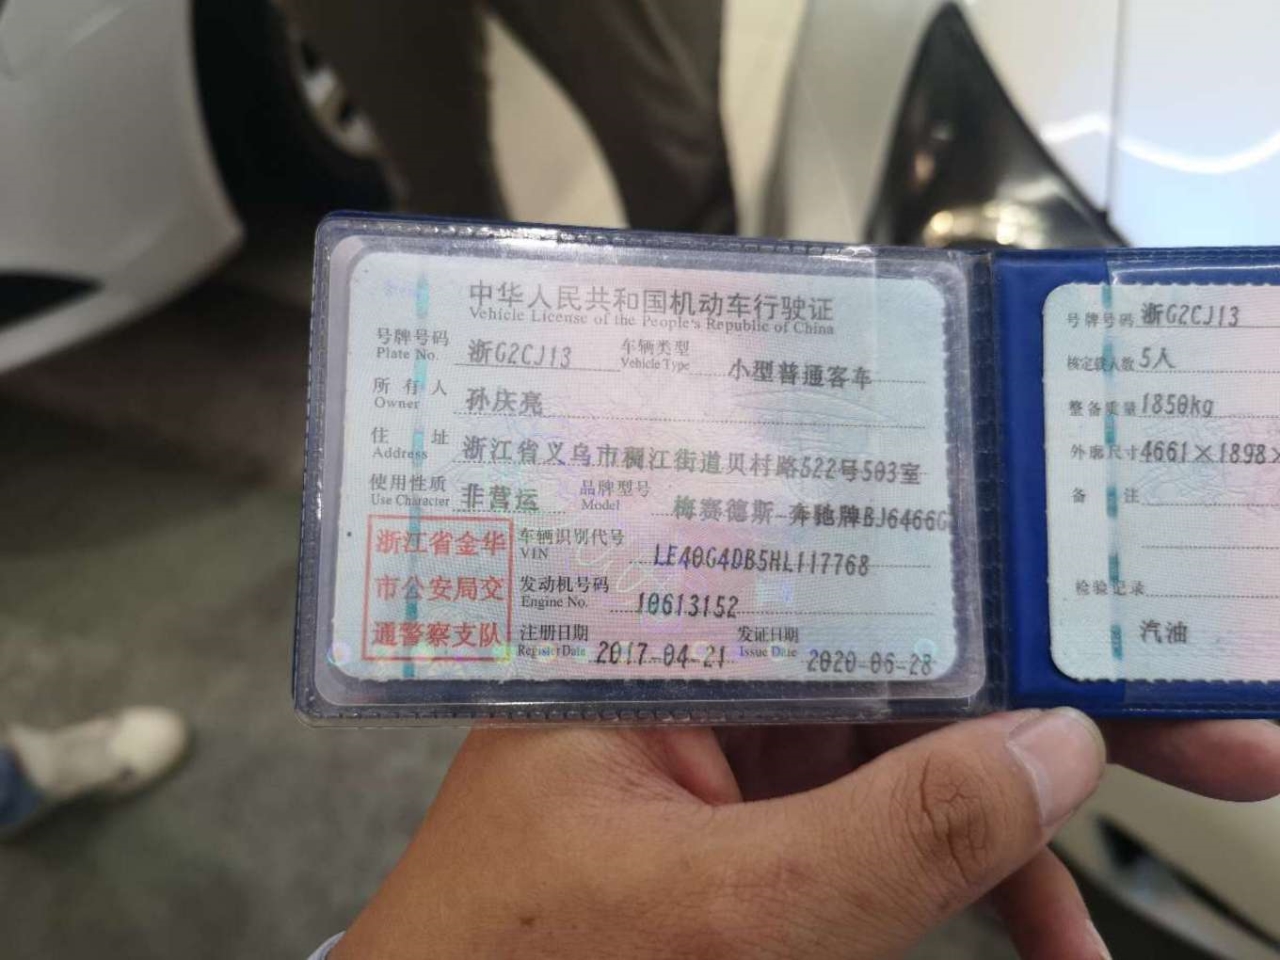 中华人民共和国机动车行驶证
Vehicle License of the People's Republic of China
号牌号码 浙G2CJ13 车辆类型 小型普通客车
Plate No. Vehicle Type
所有人 孙庆亮
Owner
住址 浙江省义乌市稠江街道贝村路522号503室
Address
使用性质 非营运 品牌型号 梅赛德斯-奔驰牌BJ6466G
Use Character Model
浙江省金华
市公安局交
通警察支队
车辆识别代号 LE40G4DB5HL117768
VIN
发动机号码 10613152
Engine No.
注册日期 2017-04-21 发证日期 2020-06-28
Register Date Issue Date
号牌号码 浙G2CJ13
核定载人数 5人
整备质量 1850kg
外廓尺寸 4661×1898×
备注
检验记录
汽油